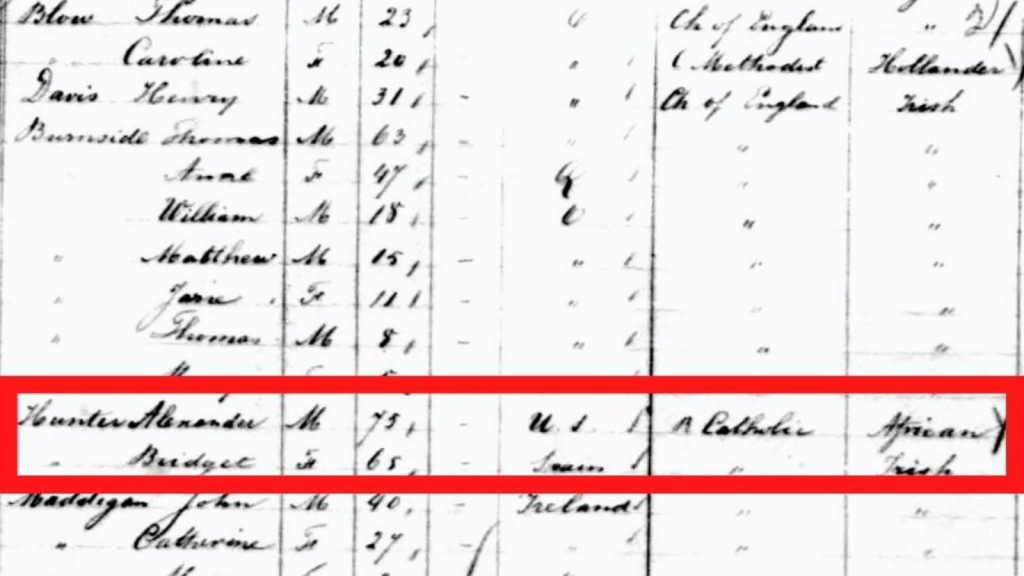 Blow Thomas M 23 Ch of England "
" Caroline F 20 " Methodist Hollander
Davis Henry M 31 - " Ch of England Irish
Burnside Thomas M 63 - " " "
Anne F 47 - Q " "
William M 18 - O " "
" Matthew M 15 - " " "
" Jane F 11 - " " "
" Thomas M 8 - " " "
Hunter Alexander M 75 - U.S. R Catholic African
" Bridget F 65 - " Irish
Maddigan John M 40 - Ireland " "
" Catherine F 27 - " " "